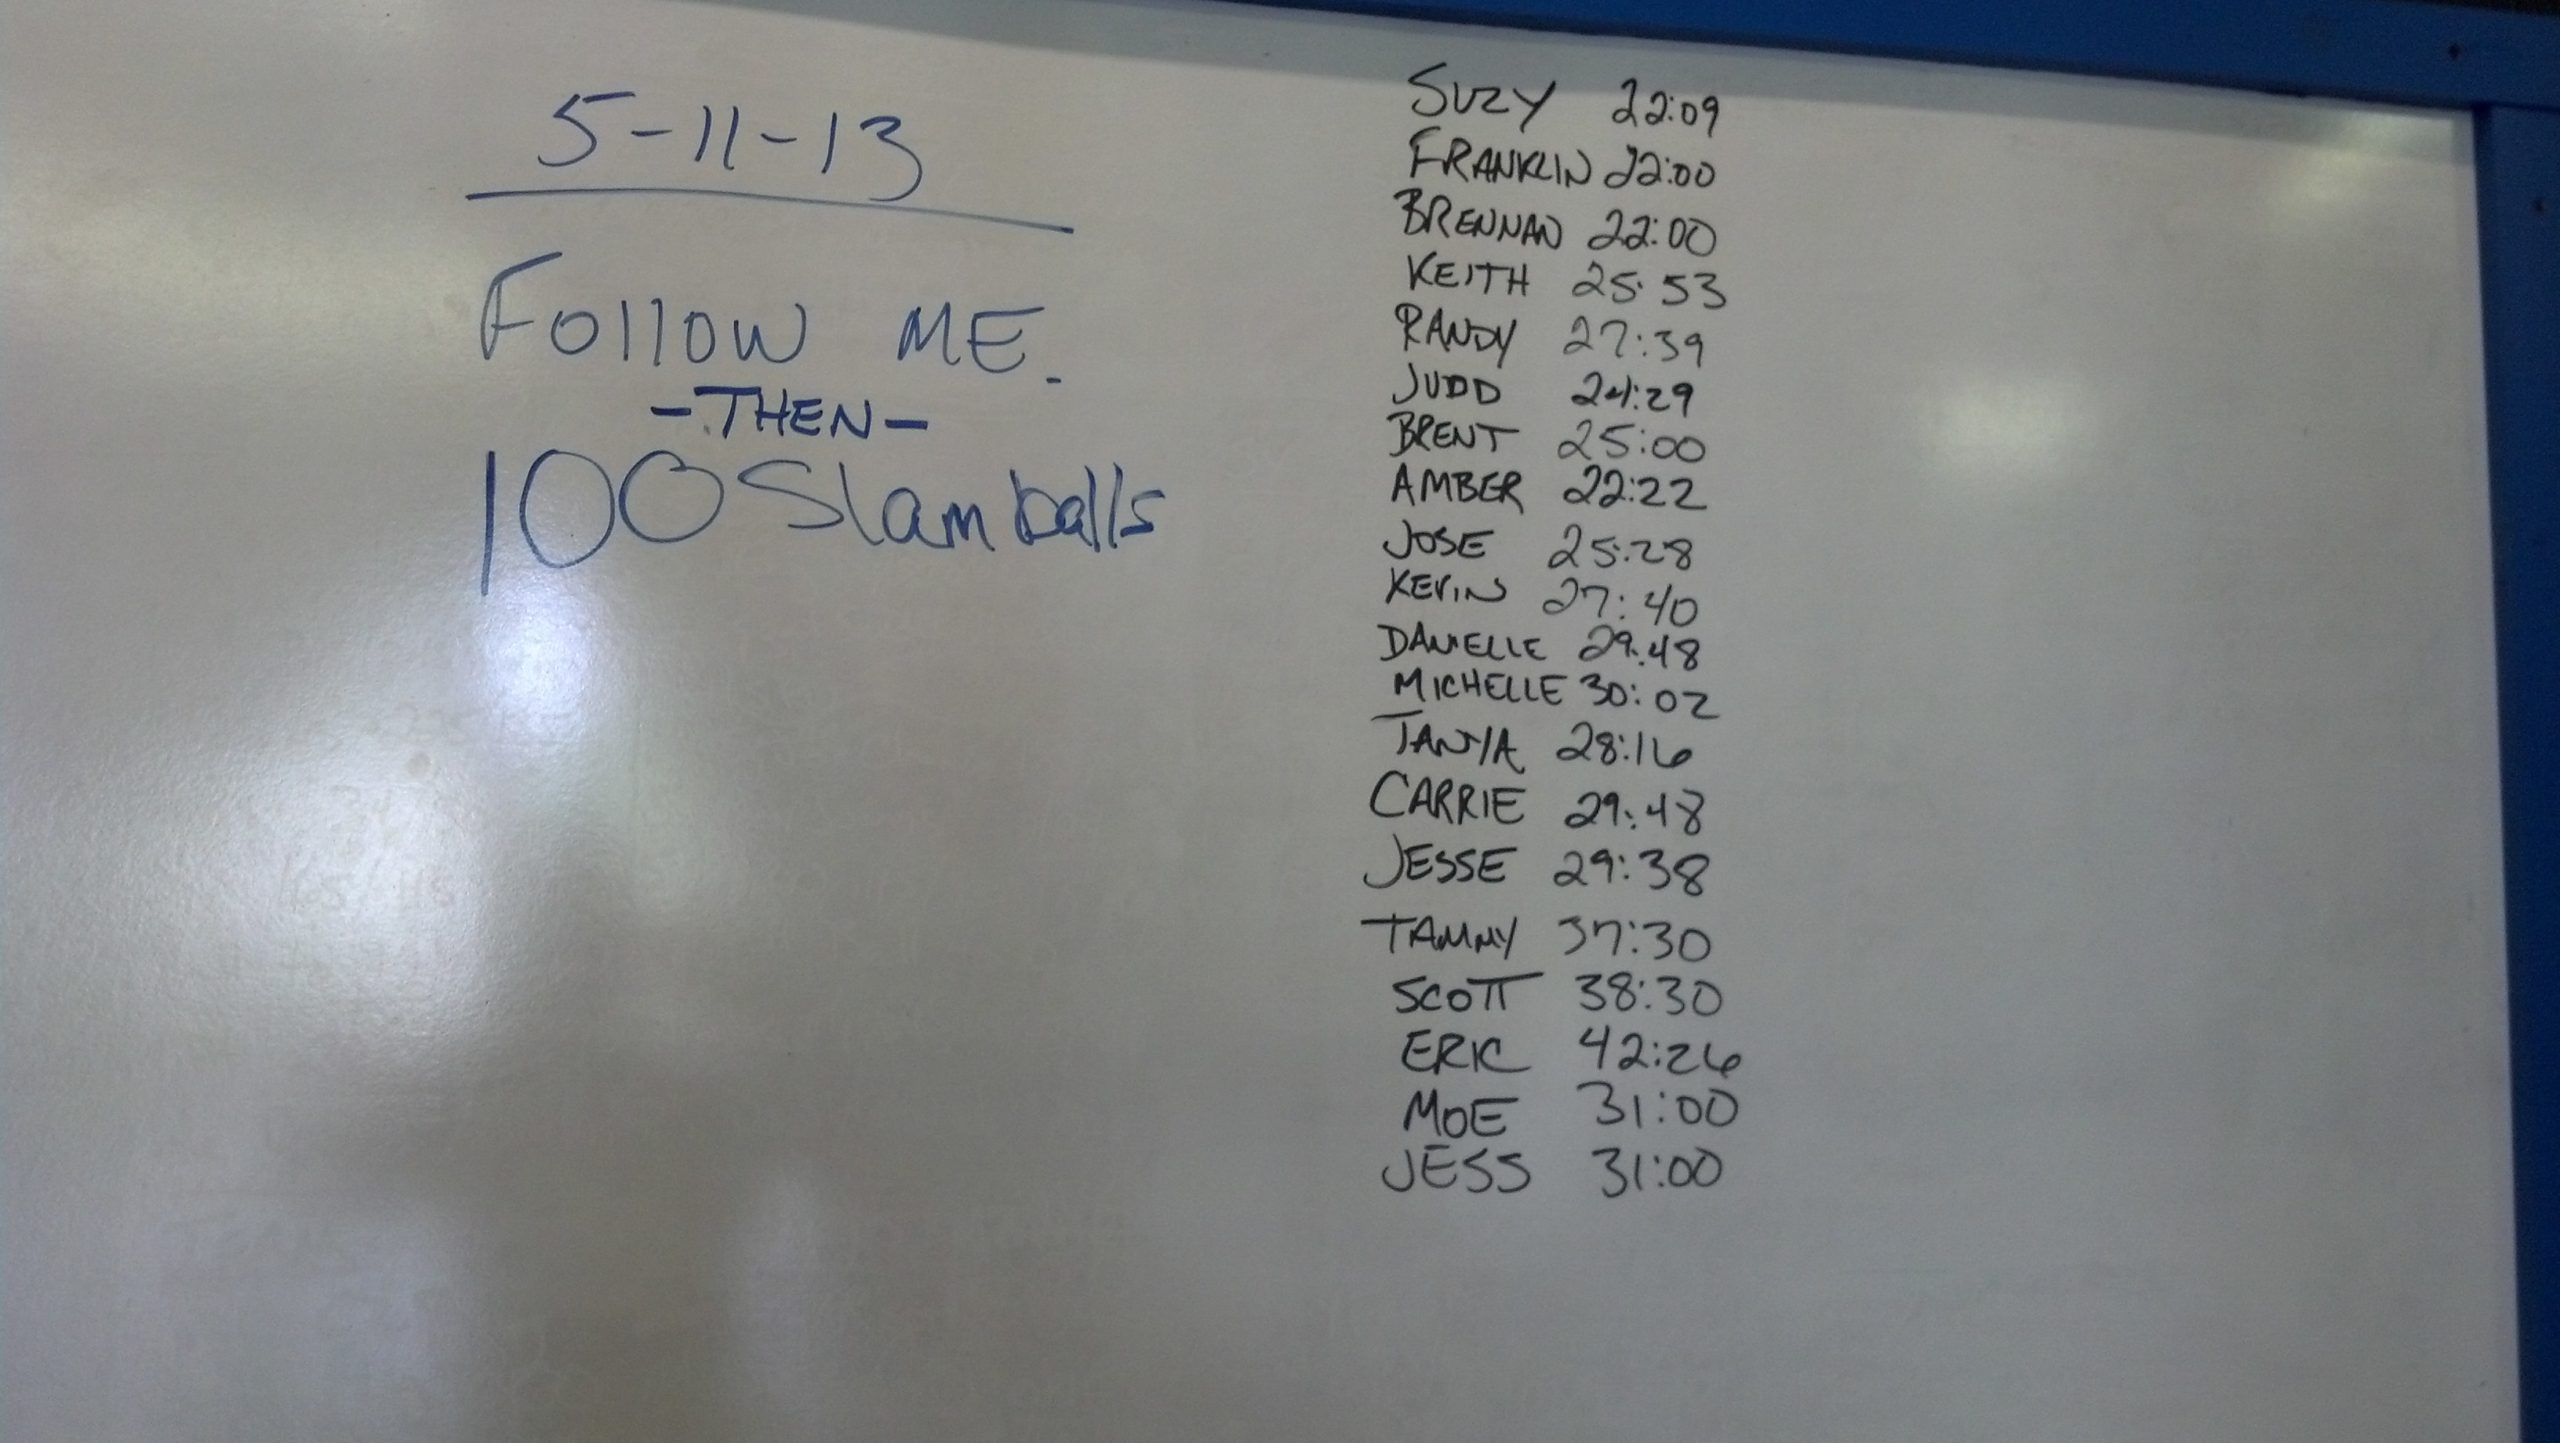 5-11-13
Follow ME.
-THEN-
100 Slamballs
SUZY 22:09
FRANKLIN 22:00
BRENNAN 22:00
KEITH 25:53
RANDY 27:39
JUDD 24:29
BRENT 25:00
AMBER 22:22
JOSE 25:28
KEVIN 27:40
DANIELLE 29:48
MICHELLE 30:02
TANYA 28:16
CARRIE 29:48
JESSE 29:38
TAMMY 37:30
SCOTT 38:30
ERIC 42:26
MOE 31:00
JESS 31:00